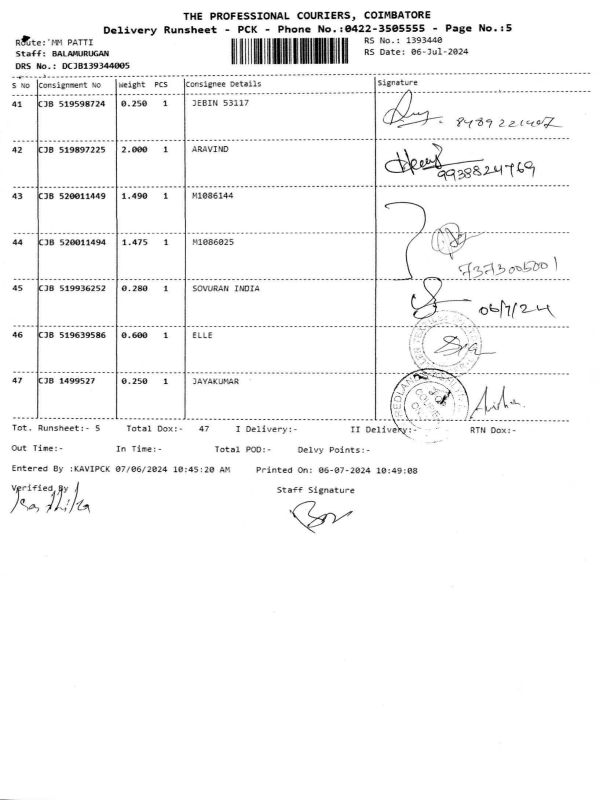 THE PROFESSIONAL COURIERS, COIMBATORE
Delivery Runsheet - PCK - Phone No.:0422-3505555 - Page No.:5
Route: MM PATTI RS No.: 1393440
Staff: BALAMURUGAN RS Date: 06-Jul-2024
DRS No.: DCJB139344005
S No Consignment No Weight PCS Consignee Details Signature
41 CJB 519598724 0.250 1 JEBIN 53117
8489221407
42 CJB 519897225 2.000 1 ARAVIND
9938824769
43 CJB 520011449 1.490 1 M1086144
44 CJB 520011494 1.475 1 M1086025
7373005001
45 CJB 519936252 0.280 1 SOVURAN INDIA
06/7/24
46 CJB 519639586 0.600 1 ELLE
47 CJB 1499527 0.250 1 JAYAKUMAR
Tot. Runsheet:- 5 Total Dox:- 47 I Delivery:- II Delivery:- RTN Dox:-
Out Time:- In Time:- Total POD:- Delvy Points:-
Entered By :KAVIPCK 07/06/2024 10:45:20 AM Printed On: 06-07-2024 10:49:08
Verified By Staff Signature